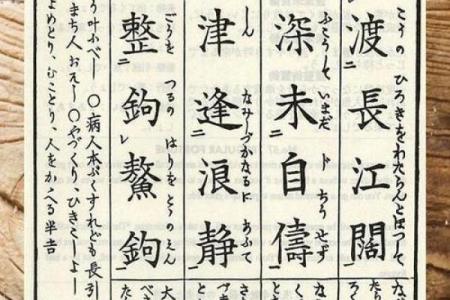 こうの ひろきをわたらんとほつして
渡ニ長江闊一
ふこうして いまだ ちうせず
深未ニ自儔一
しん なみしづかなるに あふて
津逢ニ浪静一
ごうを つるの はりをとゝのえん
整ニ鉤レ鰲鉤一
う叶ふべし 〇病人本ぷくすれども長引
まち人おそし 〇やづくり、ひきこしよし
よめとり、むことり、人をかゝへる半吉